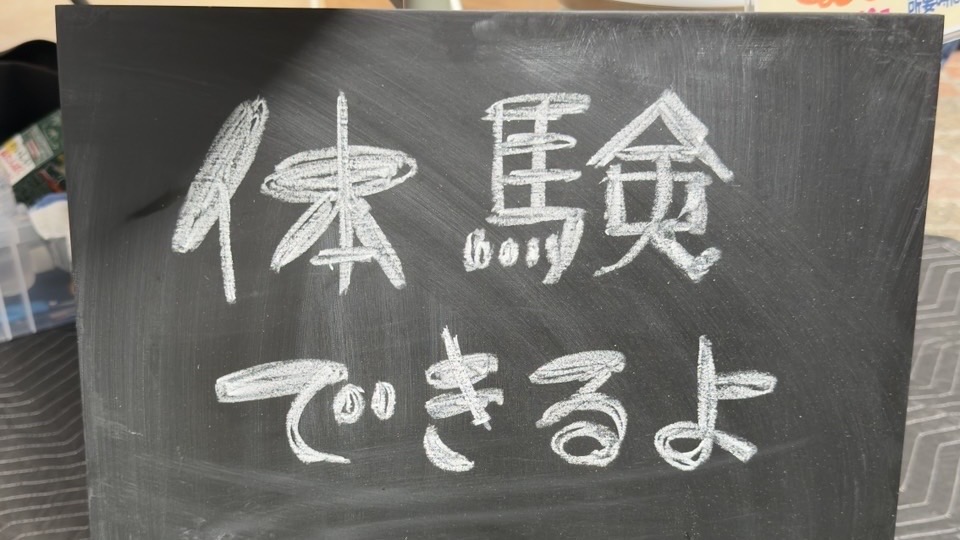 体験
できるよ